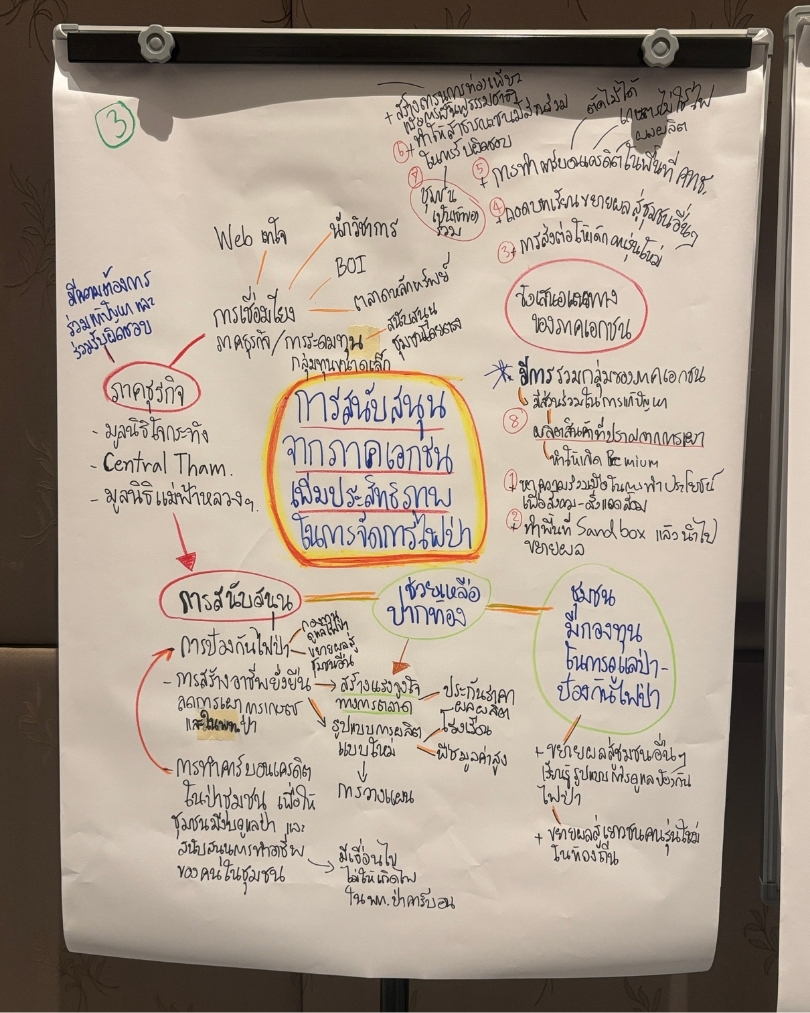 3
+ สร้างการท่องเที่ยว
เพื่อการฟื้นฟูธรรมชาติ
6 + ทำให้สาธารณะชนมีส่วนร่วม
ในการรับผิดชอบ
7
ชุมชน
เป็นเจ้าของ
ร่วม
ตัดไม้ได้
เกษตรไม่ใช้ไฟ
ผลผลิต
5
+ การทำคาร์บอนเครดิตในพื้นที่ คทช.
4 + ถอดบทเรียนขยายผลสู่ชุมชนอื่นๆ
3 + การส่งต่อให้เด็กคนรุ่นใหม่
Web เทใจ
นักวิชาการ
BOI
ตลาดหลักทรัพย์
การเชื่อมโยง
ภาคธุรกิจ/การระดมทุน
กลุ่มทุนขนาดเล็ก
สนับสนุน
ชุมชนโดยตรง
มีความต้องการ
ร่วมแก้ปัญหา และ
ร่วมรับผิดชอบ
ภาคธุรกิจ
- มูลนิธิใจกระทิง
- Central Tham.
- มูลนิธิแม่ฟ้าหลวงฯ
การสนับสนุน
จากภาคเอกชน
เพิ่มประสิทธิภาพ
ในการจัดการไฟป่า
ข้อเสนอแนวทาง
ของภาคเอกชน
* มีการรวมกลุ่มของภาคเอกชน
มีส่วนร่วมในการแก้ปัญหา
8 ผลิตสินค้าที่ปราศจากการเผา
ทำให้เกิด Premium
1 + หาความร่วมมือในการทำประโยชน์
เพื่อสังคม-สิ่งแวดล้อม
2 + ทำพื้นที่ Sandbox แล้วนำไป
ขยายผล
การสนับสนุน
ช่วยเหลือ
ปากท้อง
ชุมชน
มีกองทุน
ในการดูแลป่า-
ป้องกันไฟป่า
- การป้องกันไฟป่า
กองทุน
ดูแลไฟป่า
ขยายผลสู่
ชุมชนอื่น
- การสร้างอาชีพยั่งยืน
ลดการเผาการเกษตร
และในพท.ป่า
สร้างแรงจูงใจ
ทางการตลาด
ประกันราคา
ผลผลิต
รูปแบบการผลิต
แบบใหม่
โรงเรือน
พืชมูลค่าสูง
การวางแผน
- การทำคาร์บอนเครดิต
ในป่าชุมชน เพื่อให้
ชุมชนมีงบดูแลป่า และ
สนับสนุนการทำอาชีพ
ของคนในชุมชน
มีเงื่อนไข
ไม่ให้เกิดไฟ
ใน พท. ป่าคาร์บอน
+ ขยายผลสู่ชุมชนอื่นๆ
เรียนรู้รูปแบบการดูแลป้องกัน
ไฟป่า
+ ขยายผลสู่เยาวชนคนรุ่นใหม่
ในท้องถิ่น